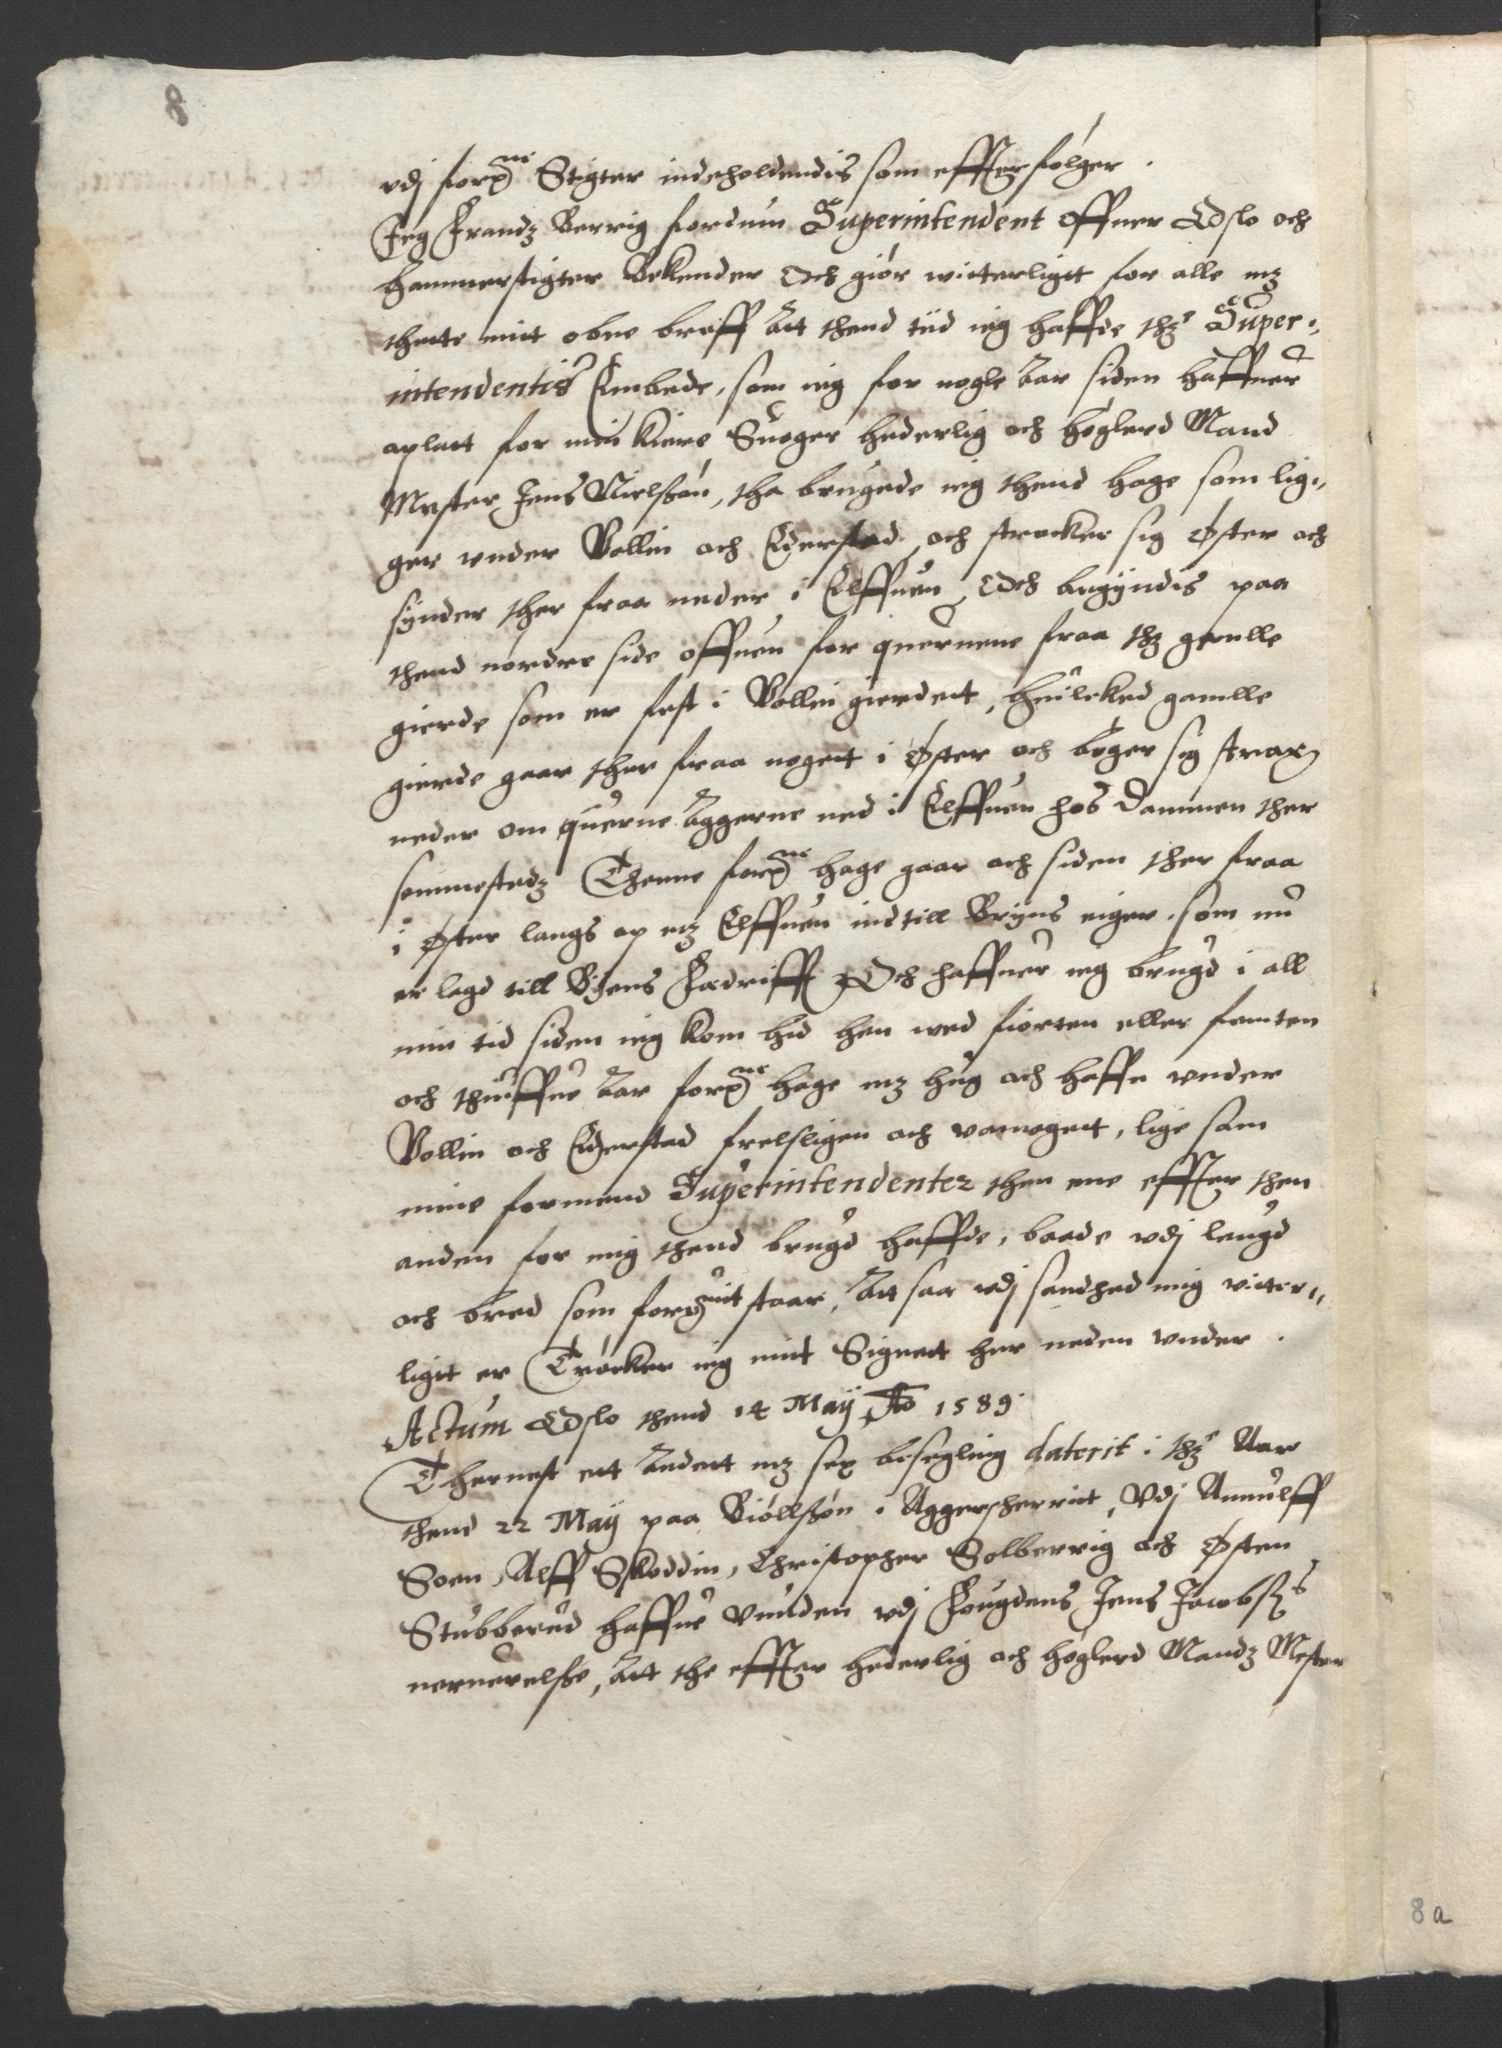 8
vdj forne Stigter indeholdendis som effterfølger.
Jeg Frandz Berrig fordum Superintendent offuer Opslo och
Hammerstigter Bekender Och giør witterligt for alle mz
thette mit obne breff Att thend tiid ieg haffde thz Super„
intendentis Embede, som ieg for nogle Aar siden haffuer
oplatt for min kiere Suoger hederlig och høglerd Mand
Mester Jens Nielssøn, tha brugede ieg thend hage som lig„
ger vnder Vollin och Ederstad, och strecker sig Øster och
synder ther fraa neder i Elffuen, Och begyndis paa
thend nordre side offuen for quernene fraa thz gamlle
gierde som er fest i Vollin gierdett, huilcked gamlle
gierde gaar ther fraa nogett i Øster och bøger sig strax
neder om querne Aggerne ned i Elffuen hos Dammen ther
sammestedz Thenne forne hage gaar och siden ther fraa
i Øster langs op mz Elffuen indtill Bryns eiger, som nu
er lagd till Byens Fædrifft, Och haffuer ieg brugd i all
min tid siden ieg kom hid hen wed fiorten eller femten
och thiuffue Aar forne hage mz hug och haffn vnder
Vollin och Ederstad frelsligen och vomogett, lige som
mine formend Superintendenter then ene effter then
anden for mig thend brugd haffde, baade vdj lengd
och bred som forskreuit staar, Att saa vdj sandhed mig vitter„
ligt er Trøcker ieg mit Signett her neden vnder.
Actum Opslo thend 14 Maij Ao 1589.
Thernest ett Andett mz sex besegling daterit i thz Aar
thend 22 Maij paa Biøllssøn i Aggersherrit, Vdj Anuulff
Soen, Alff Skoddin, Christopher Solberrig och Østen
Stubberud haffue vunden vdj Fougdens Jens Jacobss
neruerelsse, Att the effter hederlig och høglerd Mandz Mester
8a